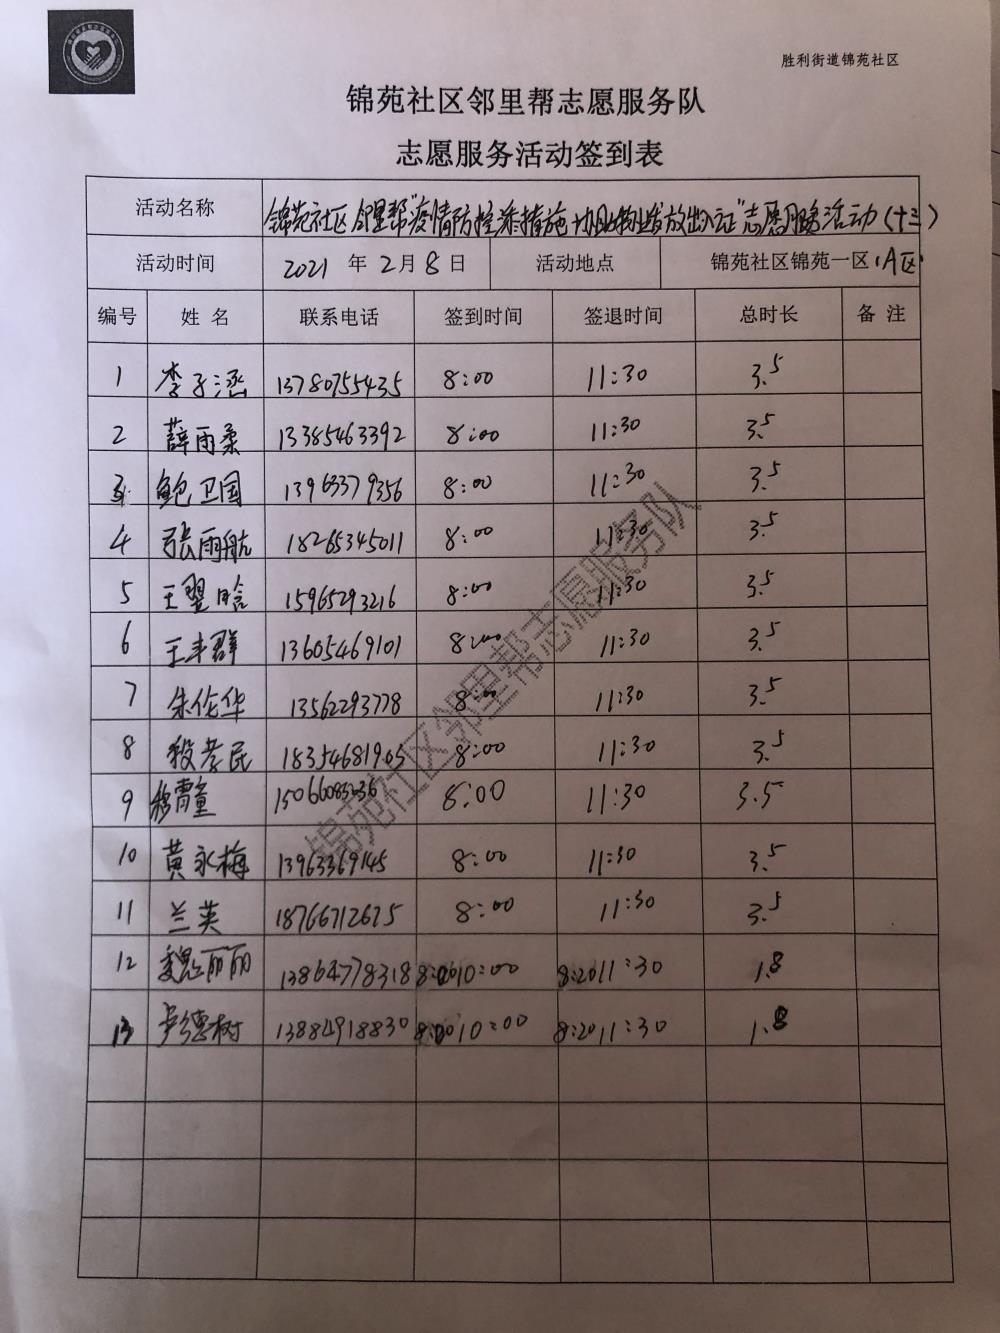 胜利街道锦苑社区
锦苑社区邻里帮志愿服务队
志愿服务活动签到表
活动名称 锦苑社区邻里帮"疫情防控添措施 协助物业发放出入证"志愿服务活动(十三)
活动时间 2021 年 2 月 8 日 活动地点 锦苑社区锦苑一区(A区)
编号 姓名 联系电话 签到时间 签退时间 总时长 备注
1 李子涵 13780755435 8:00 11:30 3.5
2 薛雨柔 13385463392 8:00 11:30 3.5
3 鲍卫国 13963379356 8:00 11:30 3.5
4 张雨航 18265345011 8:00 11:30 3.5
5 王翌晗 15965293216 8:00 11:30 3.5
6 王丰群 13605469101 8:00 11:30 3.5
7 朱伦华 13562293778 8:00 11:30 3.5
8 殷孝民 18354681905 8:00 11:30 3.5
9 穆霄童 8:00 11:30 3.5
10 黄永梅 13963369145 8:00 11:30 3.5
11 兰英 18766712675 8:00 11:30 3.5
12 魏丽丽 13864778318 8:20 10:00 8:20 11:30 1.8
13 德树 13884918830 8:20 10:00 8:20 11:30 1.8
锦苑社区邻里帮志愿服务队